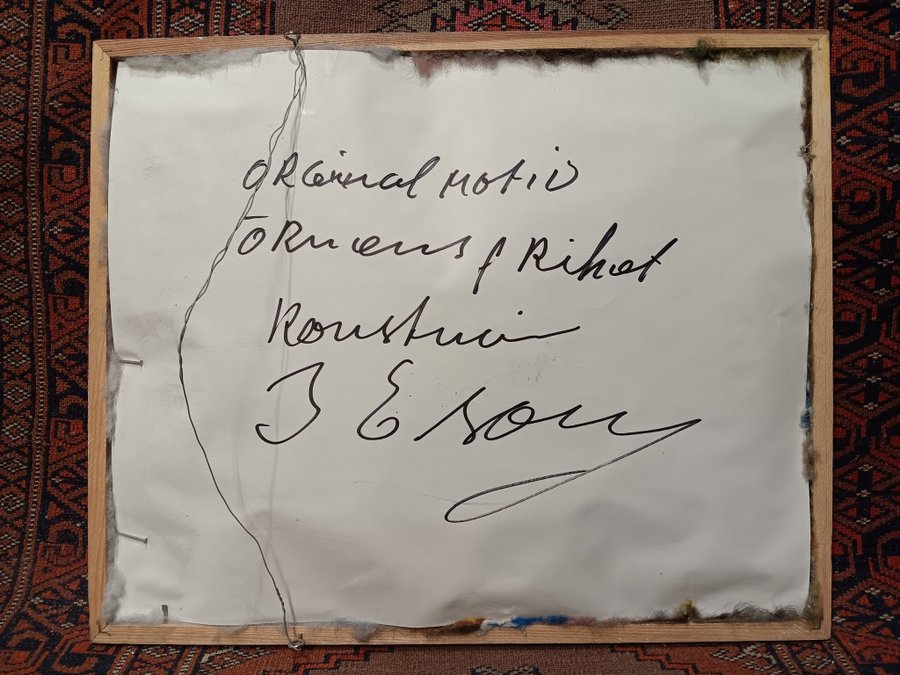 ORGinal motiv
ORnens f Riket
Konstnär
J E